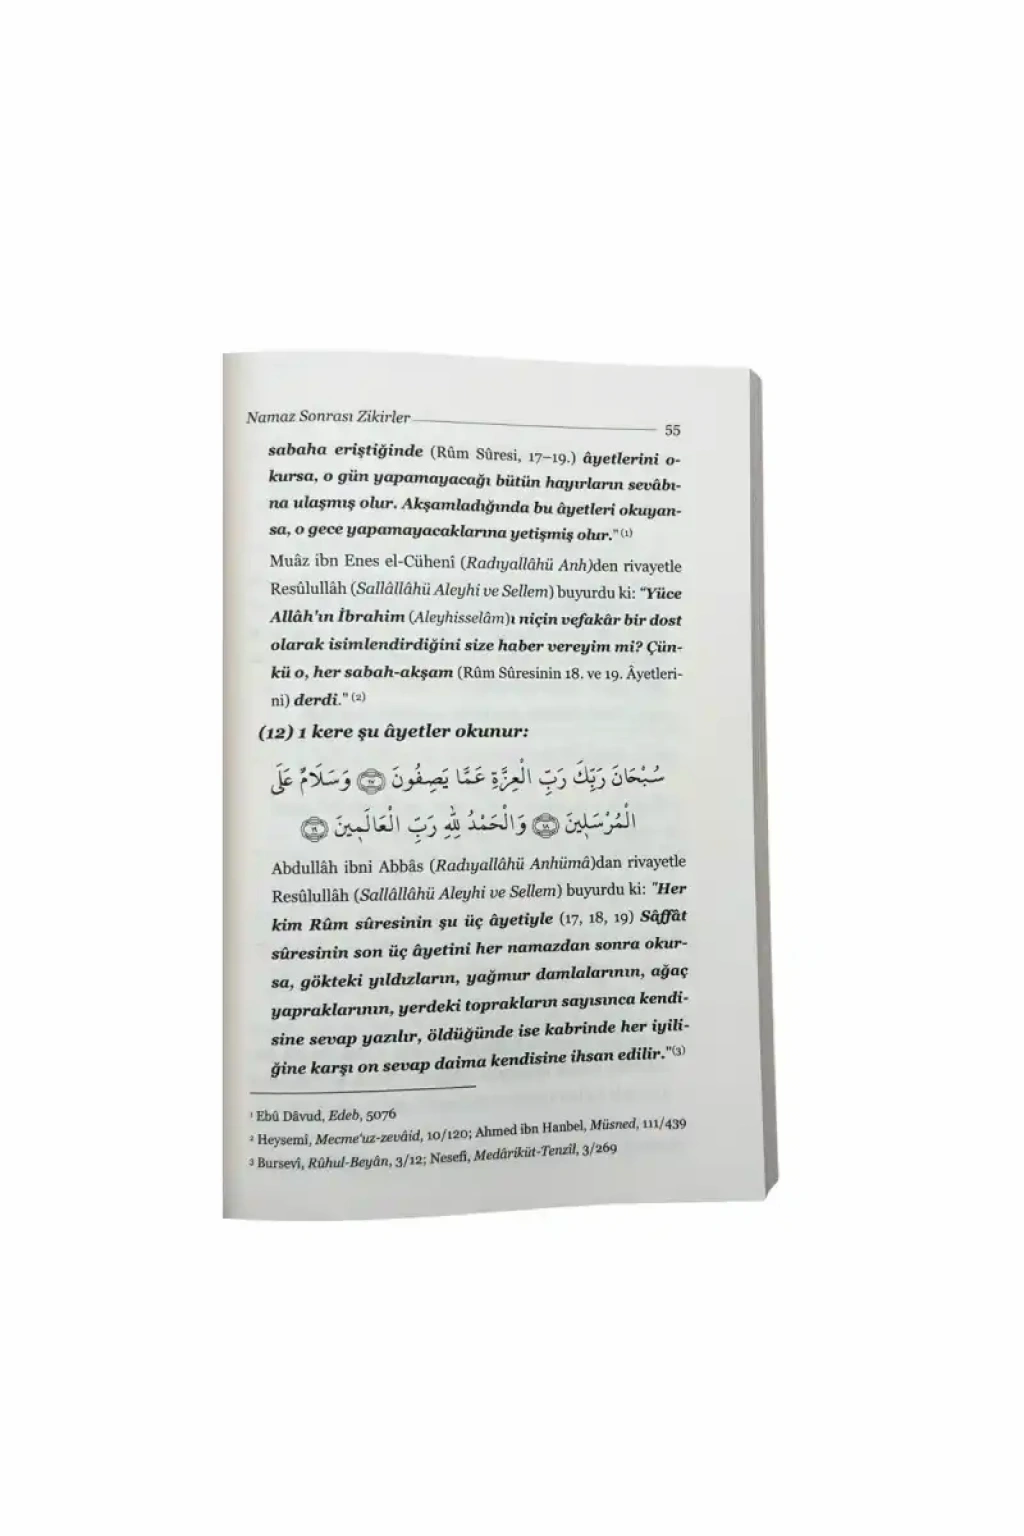 Namaz Sonrası Zikirler 55
sabaha eriştiğinde (Rûm Sûresi, 17–19.) âyetlerini o-
kursa, o gün yapamayacağı bütün hayırların sevâbı-
na ulaşmış olur. Akşamladığında bu âyetleri okuyan-
sa, o gece yapamayacaklarına yetişmiş olur." (1)
Muâz ibn Enes el-Cühenî (Radıyallâhü Anh)den rivayetle
Resûlullâh (Sallâllâhü Aleyhi ve Sellem) buyurdu ki: "Yüce
Allâh'ın İbrahim (Aleyhisselâm)ı niçin vefakâr bir dost
olarak isimlendirdiğini size haber vereyim mi? Çün-
kü o, her sabah-akşam (Rûm Sûresinin 18. ve 19. Âyetleri-
ni) derdi." (2)
(12) 1 kere şu âyetler okunur:
سُبْحَانَ رَبِّكَ رَبِّ الْعِزَّةِ عَمَّا يَصِفُونَ وَسَلَامٌ عَلَى
الْمُرْسَلِينَ وَالْحَمْدُ لِلّٰهِ رَبِّ الْعَالَمِينَ
Abdullâh ibni Abbâs (Radıyallâhü Anhümâ)dan rivayetle
Resûlullâh (Sallâllâhü Aleyhi ve Sellem) buyurdu ki: "Her
kim Rûm sûresinin şu üç âyetiyle (17, 18, 19) Sâffât
sûresinin son üç âyetini her namazdan sonra okur-
sa, gökteki yıldızların, yağmur damlalarının, ağaç
yapraklarının, yerdeki toprakların sayısınca kendi-
sine sevap yazılır, öldüğünde ise kabrinde her iyili-
ğine karşı on sevap daima kendisine ihsan edilir."(3)
¹ Ebû Dâvud, Edeb, 5076
² Heysemî, Mecme'uz-zevâid, 10/120; Ahmed ibn Hanbel, Müsned, 111/439
³ Bursevî, Rûhul-Beyân, 3/12; Nesefi, Medâriküt-Tenzîl, 3/269